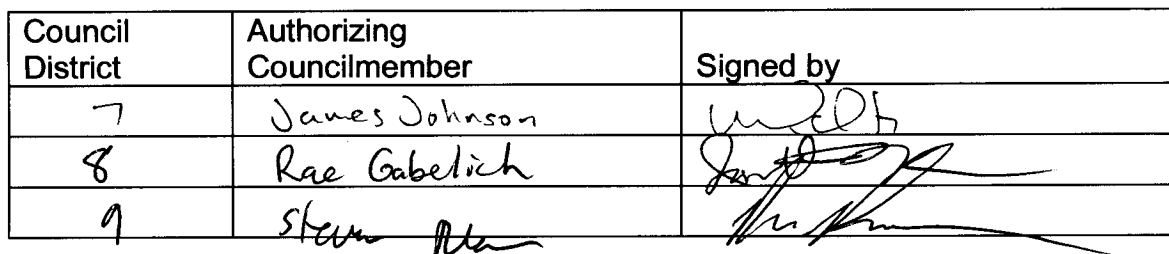 Council District
Authorizing Councilmember
Signed by
7 James Johnson
8 Rae Gabelich
9 Steven